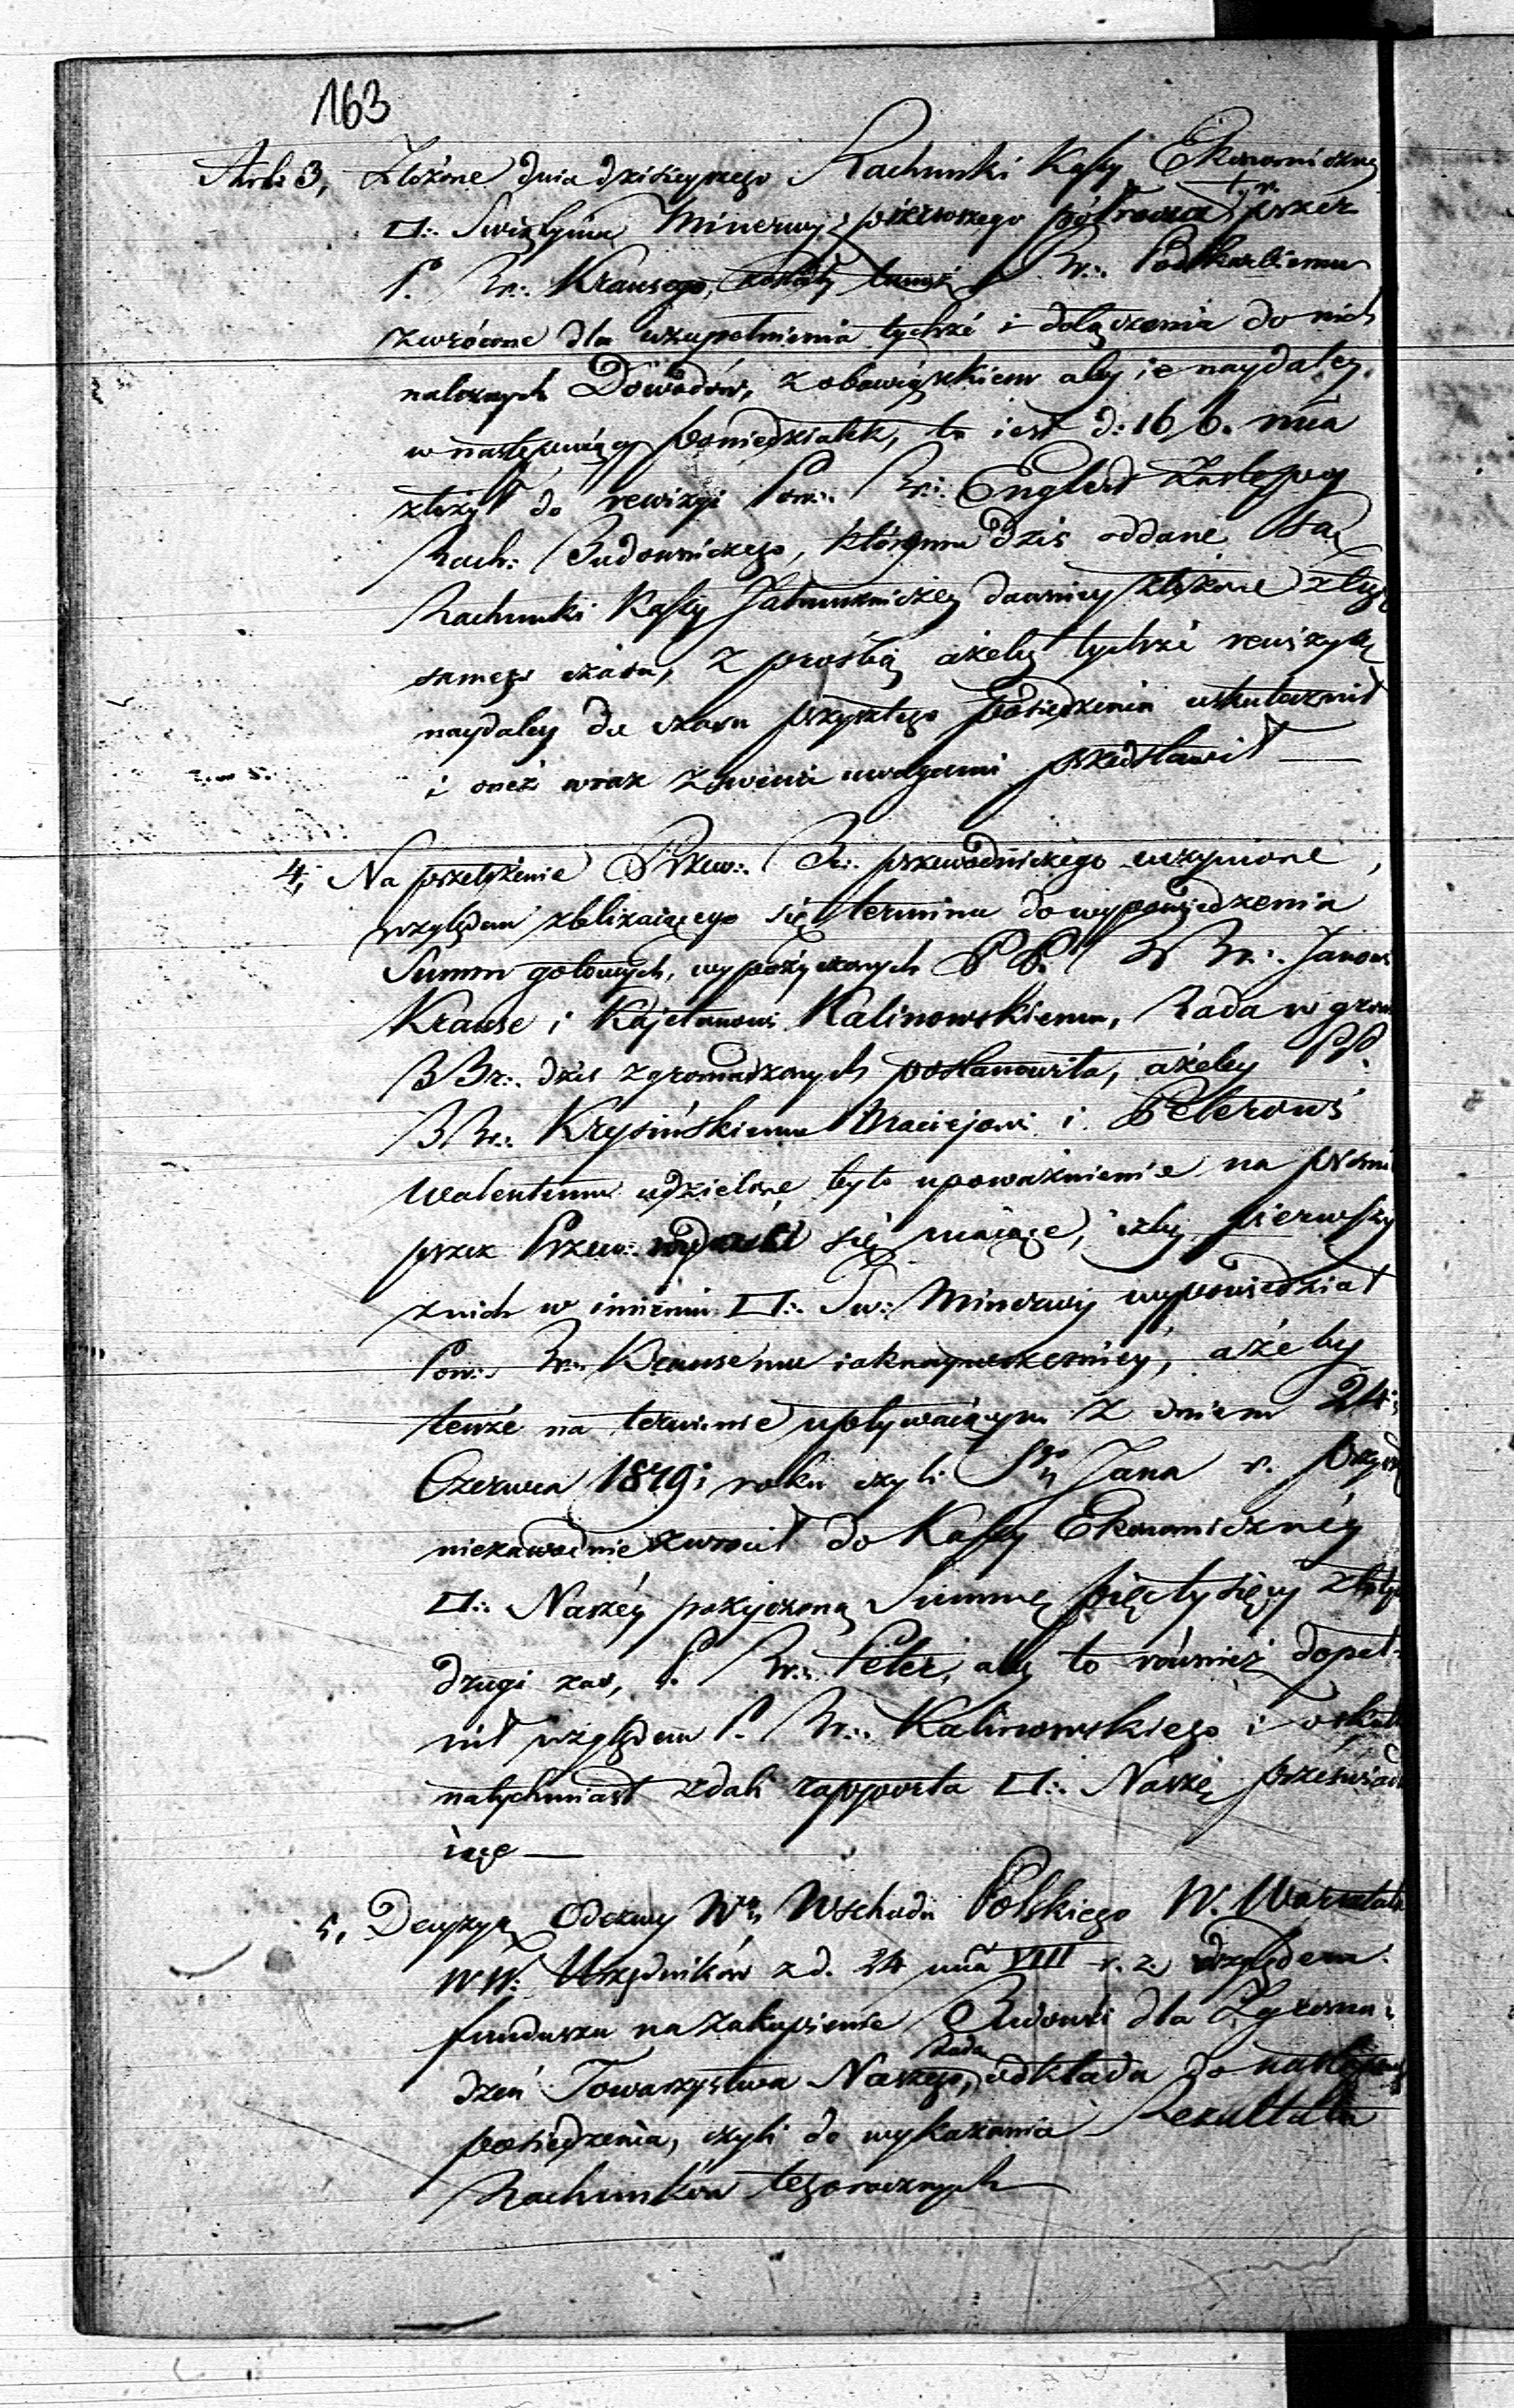 163
Artł: 3, Złożone dnia dzisieyszego Rachunki Kassy Ekonomiczney
t. r.
□:. Świątyniæ Minerwy z pierwszego półrocza przez
P. Br:. Krausego, zostały temuż P. Br:. Podskarbiemu
zwrócone dla uzupełnienia tychże i dołączenia do nich
należnych Dowodów, z obowiązkiem aby ie naydaley
w następuiący Poniedziałek, to iest d: 16 b. mca
złożył do rewizyi Pow:. Br:. Englert Zastępcy
Rach: Budowniczego, któremu dziś oddane są
Rachunki Kassy Jałmużniczey dawniey złożone z tego
samego czasu, z prośbą ażeby tychże rewizyę
naydaley do czasu przyszłego posiedzenia uskutecznił
i oneż wraz z swemi uwagami przedstawił —
4, Na przełożenie Przew:. Br:. przewodniczego uczynione,
względem zbliżaiącego się terminu do wypowiedzenia
Summ gotowych, wypożyczonych PP. BBr:. Janowi
Krause i Kajetanowi Kalinowskiemu, Rada w gronie
BBr:. dziś zgromadzonych postanowiła, ażeby PP.
BBr:. Krysińskiemu Maciejowi i Peterowi
Walentemu udzielone było upoważnienie na piśmie
przez Przew:. wydać się maiące, iżby pierwszy
z nich w imieniu □:. Św: Minerwy wypowiedział
Pow:. Br:. Krausemu iaknaywcześniey, ażeby
tenże na terminie upływaiącym z dniem 24:
Czerwca 1819: roku czyli Sgo Jana r. przysz
niezawodnie zwrócił do Kassy Ekonomicznéy
□:. Naszéy pożyczoną Summę pięć tysięcy złotych
drugi zaś, P. Br:. Peter, aby to również dopeł-
nił względem P. Br:. Kalinowskiego i o skutku
natychmiast zdali rapporta □:. Naszę przeświad
iące —
5, Decyzyą Odezwy Wgo Wschodu Polskiego W. Warsztatu
WW: Urzędników z d. 24 mca VIII r. z. względem
funduszu na zakupienie Budowli dla Zgroma-
Rada
dzeń Towarzystwa Naszego, odkłada do następnego
posiedzenia, czyli do wykazania Rezultatu
Rachunków tegorocznych —